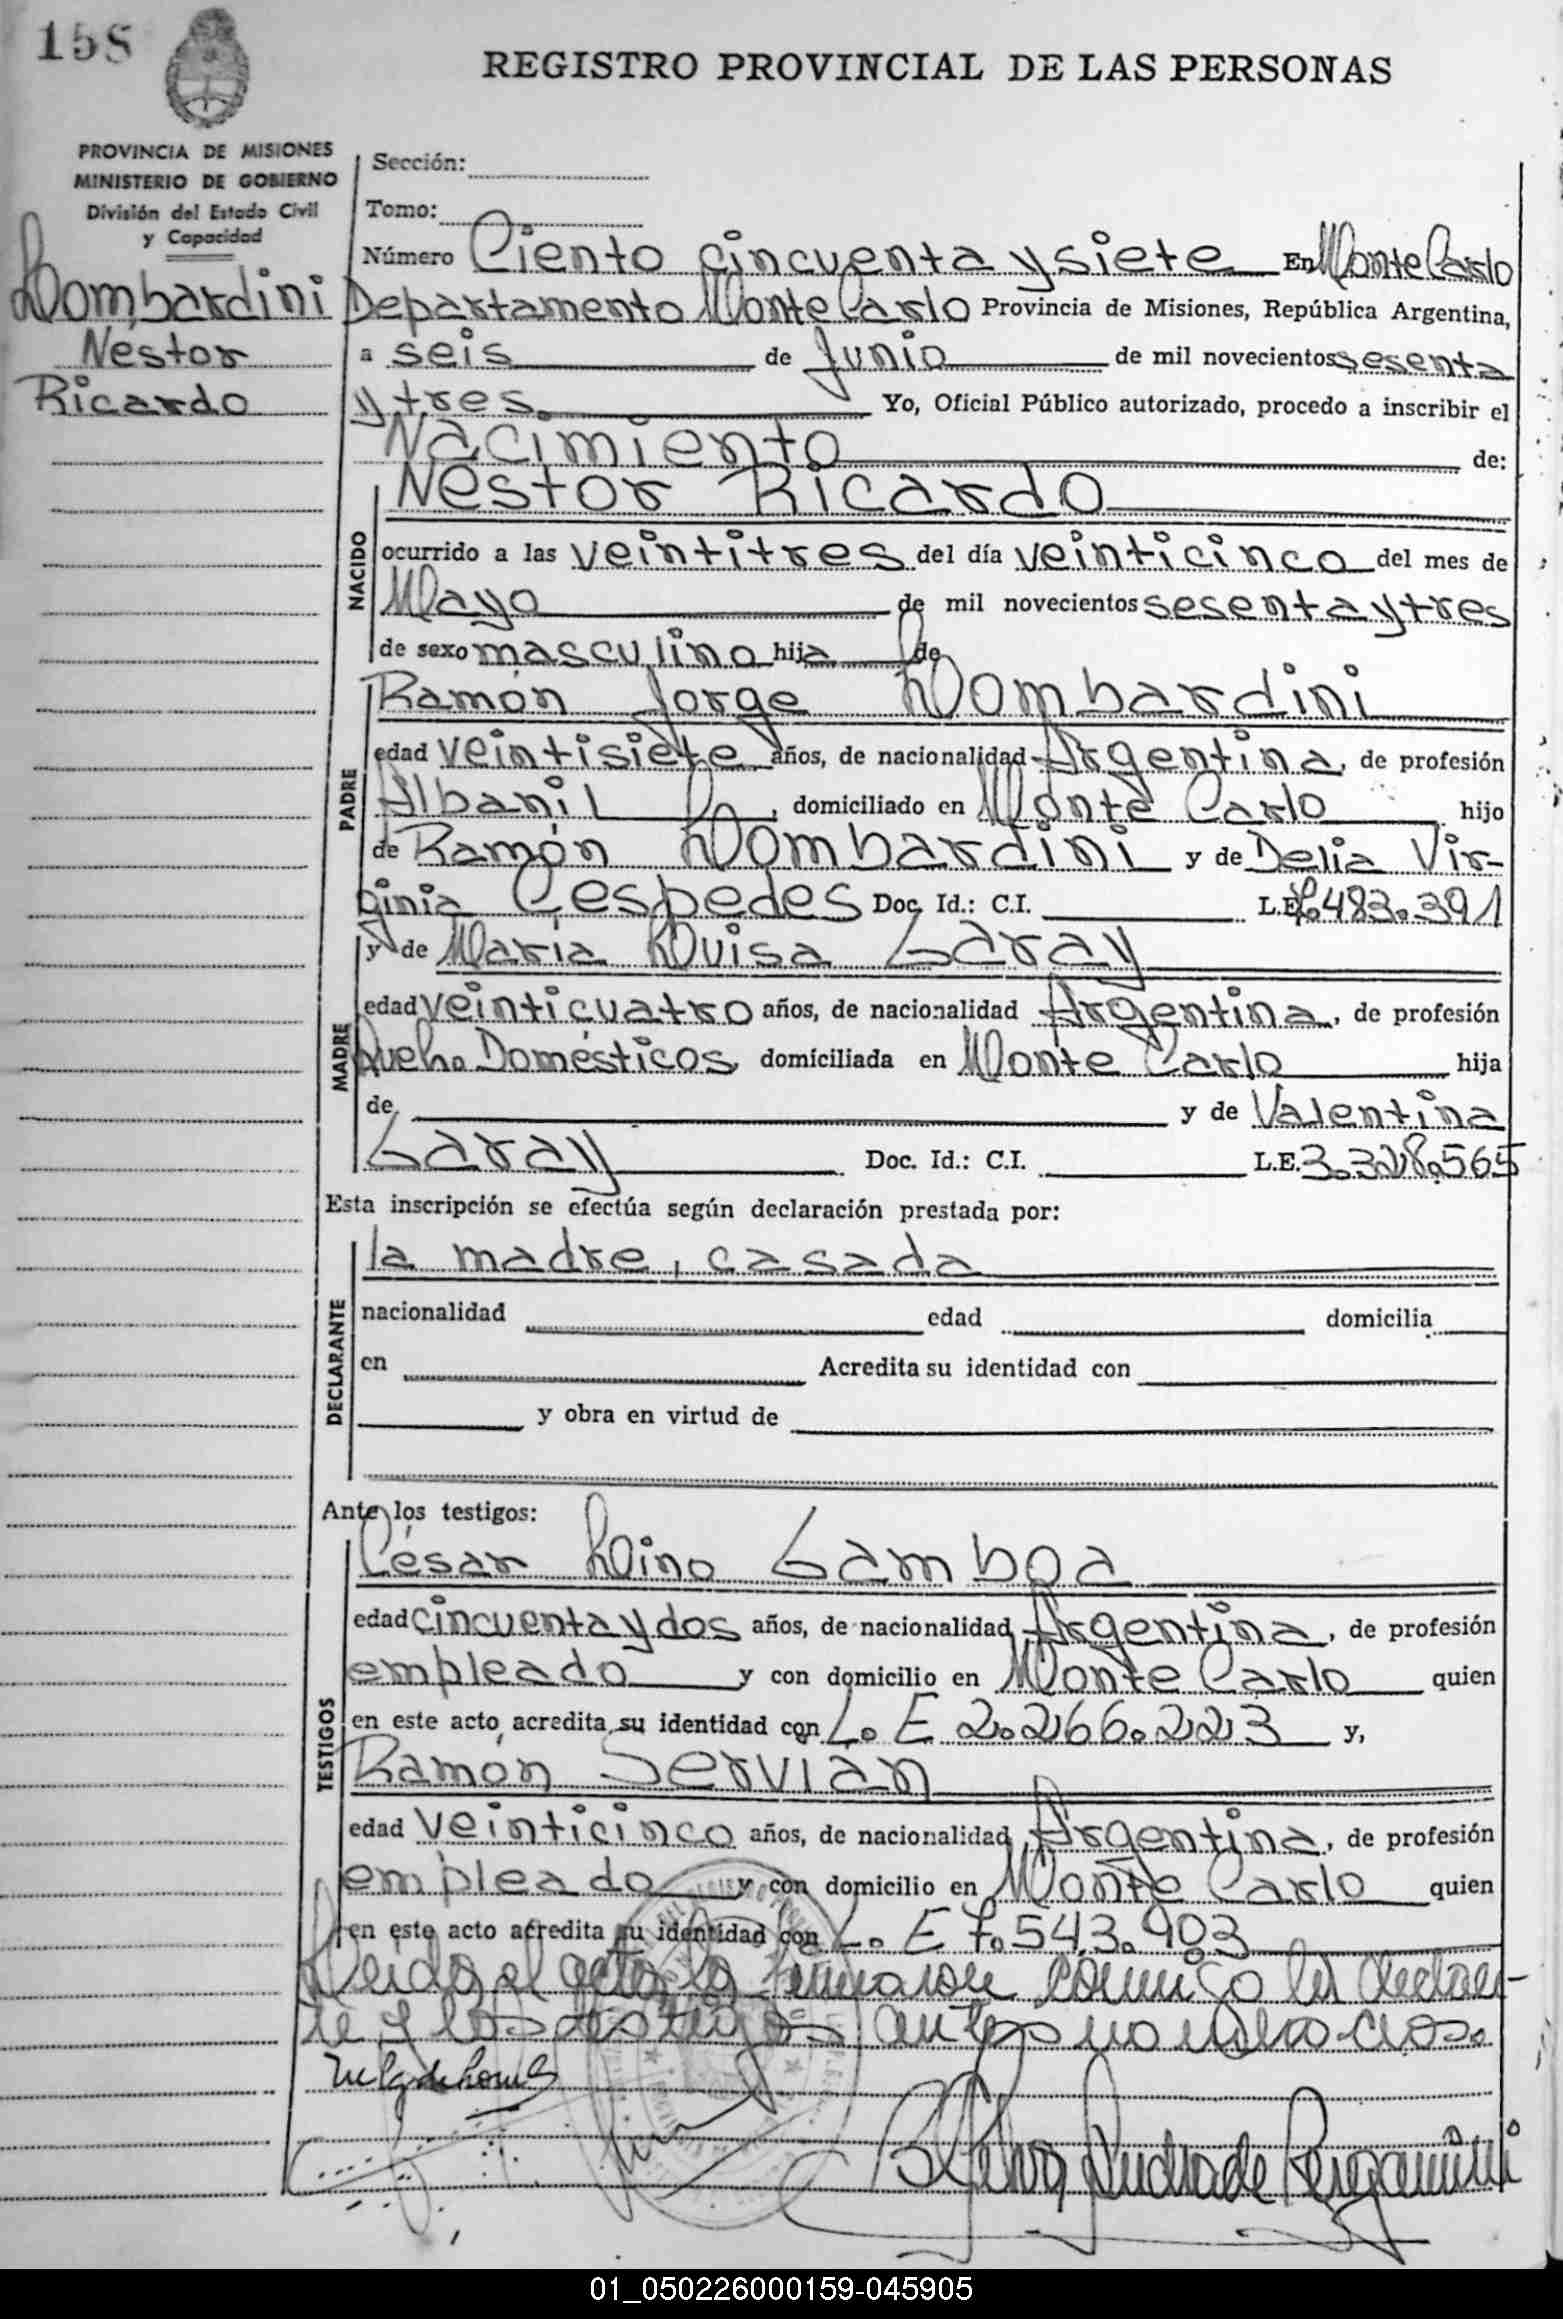 158
REGISTRO PROVINCIAL DE LAS PERSONAS
PROVINCIA DE MISIONES
MINISTERIO DE GOBIERNO
División del Estado Civil
y Capacidad
Lombardini
Nestor
Ricardo
Sección:
Tomo:
Número Ciento cincuenta y siete En Monte Carlo
Departamento Monte Carlo Provincia de Misiones, República Argentina,
a seis de Junio de mil novecientos sesenta
y tres. Yo, Oficial Público autorizado, procedo a inscribir el
Nacimiento de:
NACIDO
Nestor Ricardo
ocurrido a las veintitres del día veinticinco del mes de
Mayo de mil novecientos sesenta y tres
de sexo masculino hija de
PADRE
Ramón Jorge Lombardini
edad veintisiete años, de nacionalidad Argentina, de profesión
Albanil, domiciliado en Monte Carlo hijo
de Ramón Lombardini y de Delia Vir-
ginia Cespedes Doc. Id.: C.I. L.E. 7.483.391
y de Maria Luisa Garay
MADRE
edad veinticuatro años, de nacionalidad Argentina, de profesión
Queha. Domésticos domiciliada en Monte Carlo hija
de y de Valentina
Garay Doc. Id.: C.I. L.E. 3.328.565
Esta inscripción se efectúa según declaración prestada por:
DECLARANTE
la madre, casada
nacionalidad edad domicilia
en Acredita su identidad con
y obra en virtud de
Ante los testigos:
TESTIGOS
César Lino Gamboa
edad cincuenta y dos años, de nacionalidad Argentina, de profesión
empleado y con domicilio en Monte Carlo quien
en este acto acredita su identidad con L. E 2.266.223 y,
Ramón Servian
edad veinticinco años, de nacionalidad Argentina, de profesión
empleado y con domicilio en Monte Carlo quien
en este acto acredita su identidad con L. E 7.543.903
Leida el acta la firmaron conmigo la declaran-
te y los testigos antes nombrados.
01_050226000159-045905